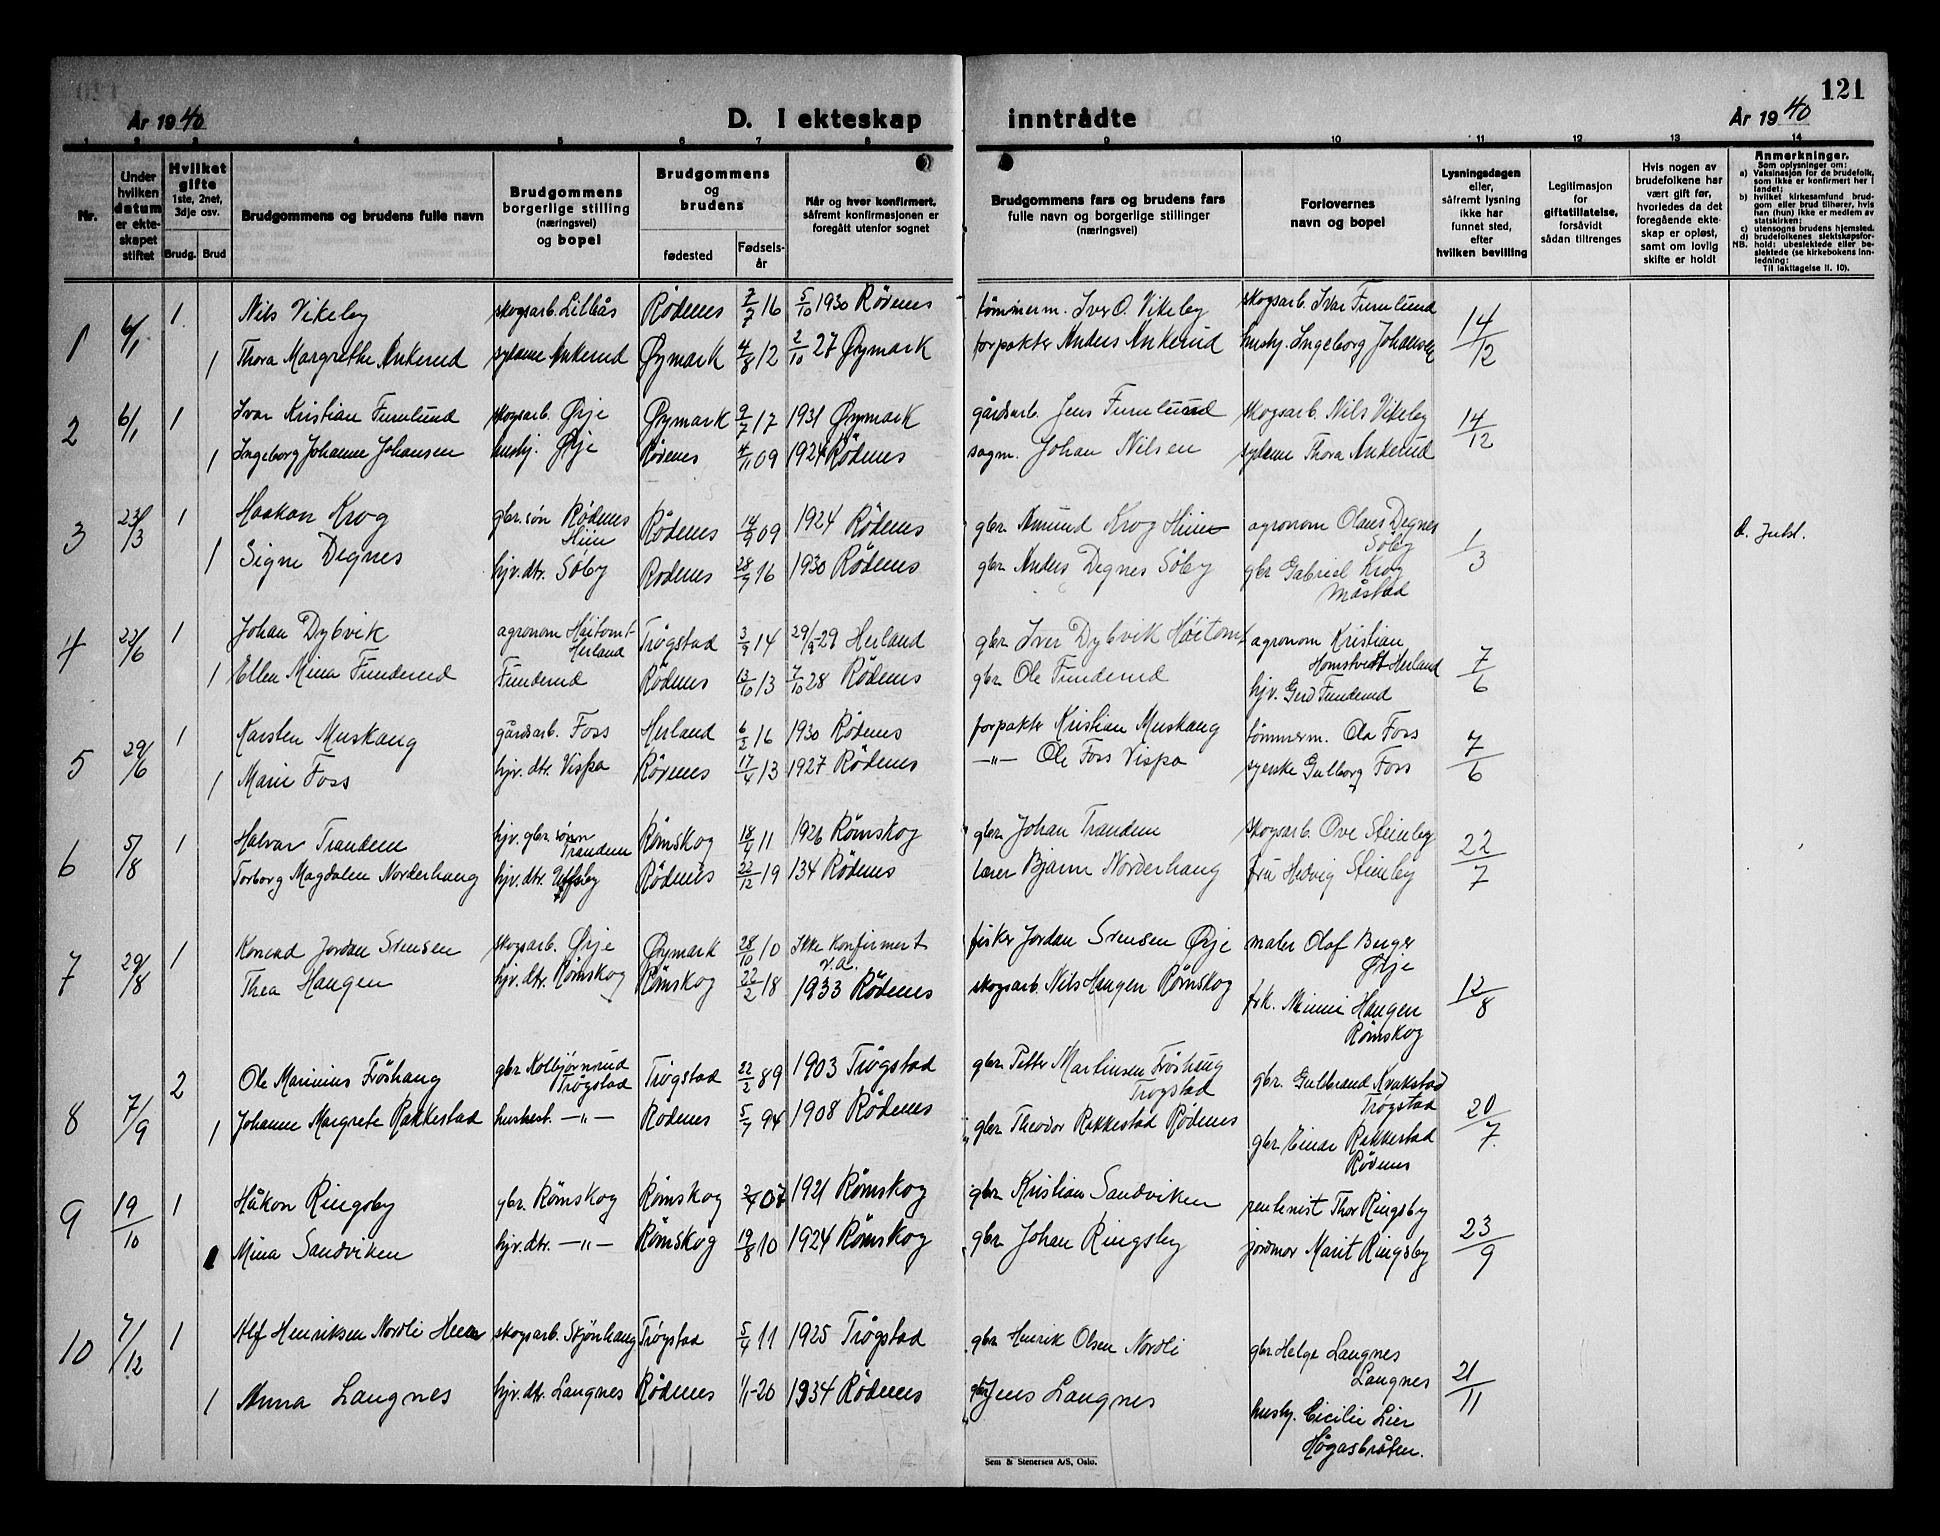 121
År 1940
D. I ekteskap inntrådte
År 1940
1 2 3 4 5 6 7 8 9 10 11 12 13 14
Nr.
Under hvilken datum er ekteskapet stiftet
Hvilket gifte 1ste, 2net, 3dje osv.
Brudg. Brud
Brudgommens og brudens fulle navn
Brudgommens borgerlige stilling (næringsvei) og bopel
Brudgommens og brudens
fødested
Fødselsår
Når og hver konfirmert, såfremt konfirmasjonen er foregått utenfor sognet
Brudgommens fars og brudens fars fulle navn og borgerlige stillinger (næringsvei)
Forlovernes navn og bopel
Lysningsdagen eller, såfremt lysning ikke har funnet sted, efter hvilken bevilling
Legitimasjon for giftetillatelse, forsåvidt sådan tiltrenges
Hvis nogen av brudefolkene har vært gift før, hvorledes da det foregående ekteskap er opløst, samt om lovlig skifte er holdt
Anmerkninger.
Som oplysninger om:
a) Vaksinasjon for de brudefolk, som ikke er konfirmert her i landet;
b) hvilket kirkesamfund brudgom eller brud tilhører, hvis han (hun) ikke er medlem av statskirken;
c) utensogns brudens hjemsted.
d) brudefolkenes slektskapsforhold: ubeslektede eller beslektede (se kirkebokens innledning:
NB. Til iakttagelse II. 10).
1 6/1 1 Nils Vikeby skogsarb. Lillås Rødenes 7/7 16 5/10 1930 Rødenes tømmerm. Iver O. Vikeby skogsarb. Ivar Furulund 14/12
1 Thora Margrethe Ankerud sydame Ankerud Øymark 4/8 12 2/10 27 Øymark forpakter Anders Ankerud hushj. Ingeborg Johansen
2 6/1 1 Ivar Kristian Furulund skogsarb. Ørje Øymark 9/7 17 1931 Øymark gårdsarb. Jens Furulund skogsarb. Nils Vikeby 14/12
1 Ingeborg Johanne Johansen hushj. Ørje Rødenes 4/11 09 1924 Rødenes sagm. Johan Nilsen sydame Thora Ankerud
3 23/3 1 Haakon Krog gbr. søn Rødenes Hiim Rødenes 14/9 09 1924 Rødenes gbr. Amund Krog Hiim agronom Olaus Degnes Søby 1/3
1 Signe Degnes hjv. dtr. Søby Rødenes 28/9 16 1930 Rødenes gbr. Anders Degnes Søby gbr Gabriel Krog Måstad
4 22/6 1 Johan Dybvik agronom Høitomt Herland Trøgstad 3/9 14 29/9-29 Herland gbr. Iver Dybvik Høitomt agronom Kristian Homstvedt Herland 7/6
1 Ellen Mina Funderud Funderud Rødenes 13/10 13 7/10 28 Rødenes gbr. Ole Funderud hjv. Gerd Funderud
5 29/6 1 Karsten Muskaug gårdsarb. Foss Herland 6/2 16 1930 Rødenes forpakter Kristian Muskaug tømmerm. Ola Foss 7/6
1 Marie Foss hjv. dtr. Vispa Rødenes 17/4 13 1927 Rødenes —"— Ole Foss Vispa syerske Gulborg Foss
6 5/8 1 Halvar Trandem hjv. gbr. sønn Trandem Rømskog 18/4 11 1926 Rømskog gbr. Johan Trandem skogsarb. Ove Stenby 22/7
Torborg Magdalen Norderhaug hjv. dtr. Rødenes 22/12 19 134 Rødenes lærer Bjarne Norderhaug fru Hedvig Stenby
7 29/8 1 Konrad Jordan Svensen skogsarb. Ørje Øymark 28/10 10 Ikke konfirmert v.a. fisker Jordan Svensen Ørje maler Olaf Berger Ørje 12/8
Thea Haugen hjv. dtr. Rømskog Rømskog 22/2 18 1933 Rødenes skogsarb. Nils Haugen Rømskog frk. Minni Haugen Rømskog
8 7/9 2 Ole Marinius Frøshaug gbr Kolbjørnsrud Trøgstad Trøgstad 22/2 89 1903 Trøgstad gbr. Petter Martinsen Frøshaug Trøgstad gbr. Gulbrand Kvakstad Trøgstad 20/7
1 Johanne Margrete Rakkestad husbest. —"— Rødenes 5/7 94 1908 Rødenes gbr Theodor Rakkestad Rødenes gbr. Einar Rakkestad Rødenes
9 19/10 1 Håkon Ringsby gbr. Rømskog Rømskog 3/4 07 1921 Rømskog gbr. Kristian Sandviken rentenist Thor Ringsby 23/9
1 Mina Sandviken hjv. dtr. —"— Rømskog 19/8 10 1924 Rømskog gbr. Johan Ringsby jordmor Marit Ringsby
10 7/12 1 Alf Henriksen Nordli skogsarb. Skjønhaug Trøgstad 5/4 11 1925 Trøgstad gbr Henrik Olsen Nordli gbr Helge Langnes Langnes 21/11
1 Anna Langnes hjv. dtr. Langnes Rødenes 1/1-20 1934 Rødenes gbr Jens Langnes hushj. Cicilie Lier Høgåsbråten.
Sem & Stenersen A/S, Oslo.